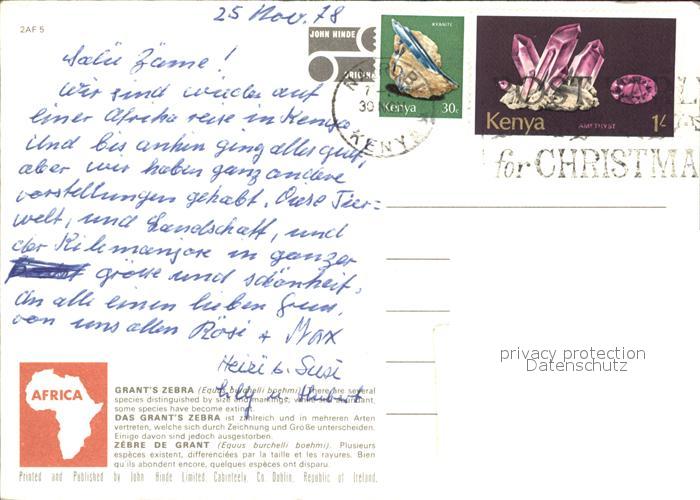 25 Nov. 78
2AF 5
Salü Zäme!
Wir sind wieder auf
einer Afrika reise in Kenya
Und bis anhin ging alles gut,
aber wir haben ganz andere
vorstellungen gehabt. Diese Tier=
welt, und Landschaft, und
der Kilimanjaro in ganzer
grösse und schönheit,
An alle einen lieben Gruss,
von uns allen Rösi + Max
Heiri u. Susi
Lilly u. Hubert
JOHN HINDE
ORIGINAL
KYANITE
Kenya 30c
Kenya AMETHYST 1/-
NAIROBI
KENYA
for CHRISTMA
privacy protection
Datenschutz
AFRICA
GRANT'S ZEBRA (Equus burchelli boehmi). There are several
species distinguished by size and markings, while still abundant,
some species have become extinct.
DAS GRANT'S ZEBRA ist zahlreich und in mehreren Arten
vertreten, welche sich durch Zeichnung und Größe unterscheiden.
Einige davon sind jedoch ausgestorben.
ZÈBRE DE GRANT (Equus burchelli boehmi). Plusieurs
espèces existent, différenciées par la taille et les rayures. Bien
qu'ils abondent encore, quelques espèces ont disparu.
Printed and Published by John Hinde Limited, Cabinteely, Co. Dublin, Republic of Ireland.